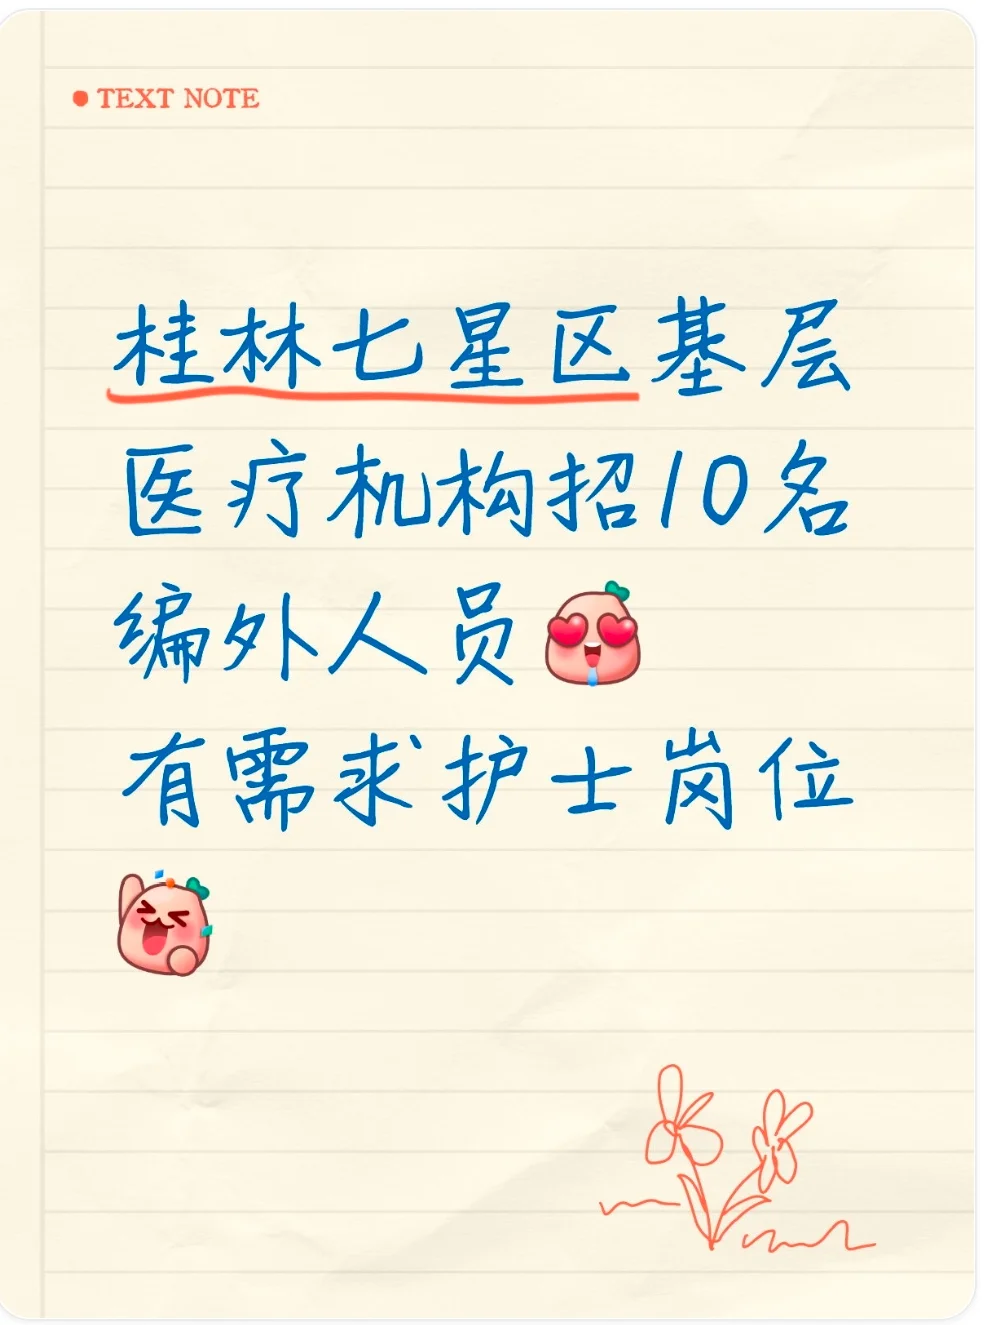 TEXT NOTE
桂林七星区基层
医疗机构招10名
编外人员
有需求护士岗位